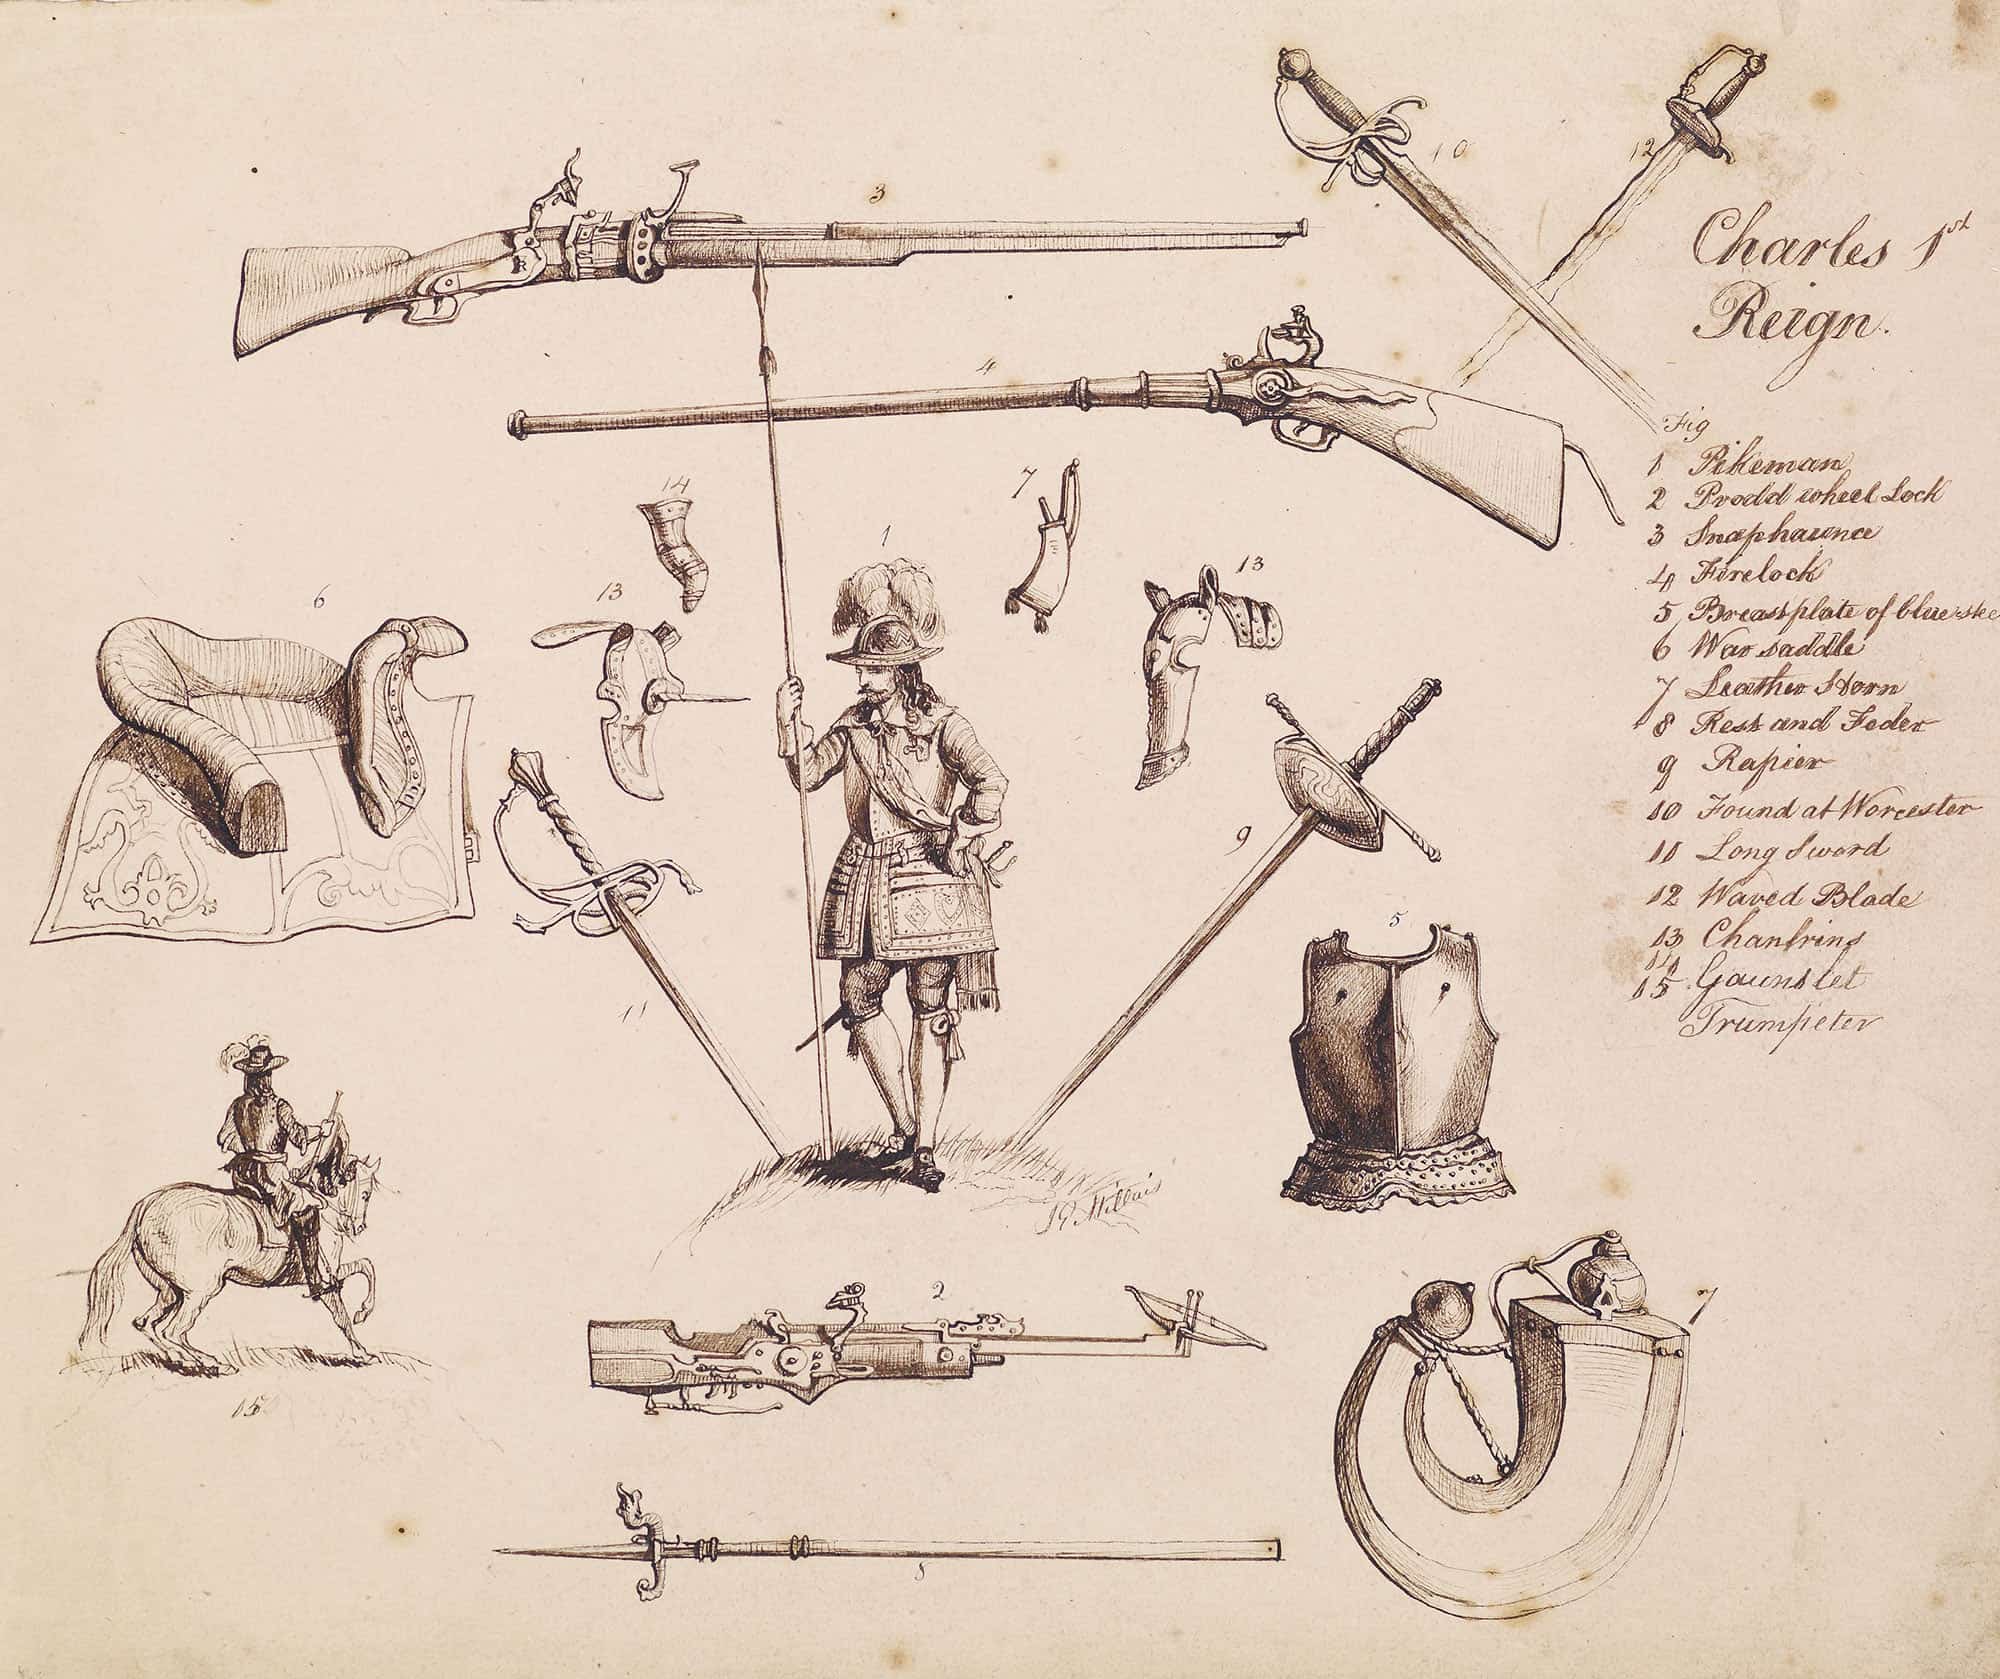 10
12
3
Charles 1st
Reign.
4
Fig
1 Pikeman
2 Prodd wheel Lock
3 Snaphaunce
4 Firelock
5 Breastplate of blue stee
6 War saddle
7 Leather Horn
8 Rest and Feder
9 Rapier
10 Found at Worcester
11 Long Sword
12 Waved Blade
13 Chanfrins
14
15 Gauntlet
Trumpeter
14
7
1
13
13
6
9
5
11
J E Millais
2
7
15